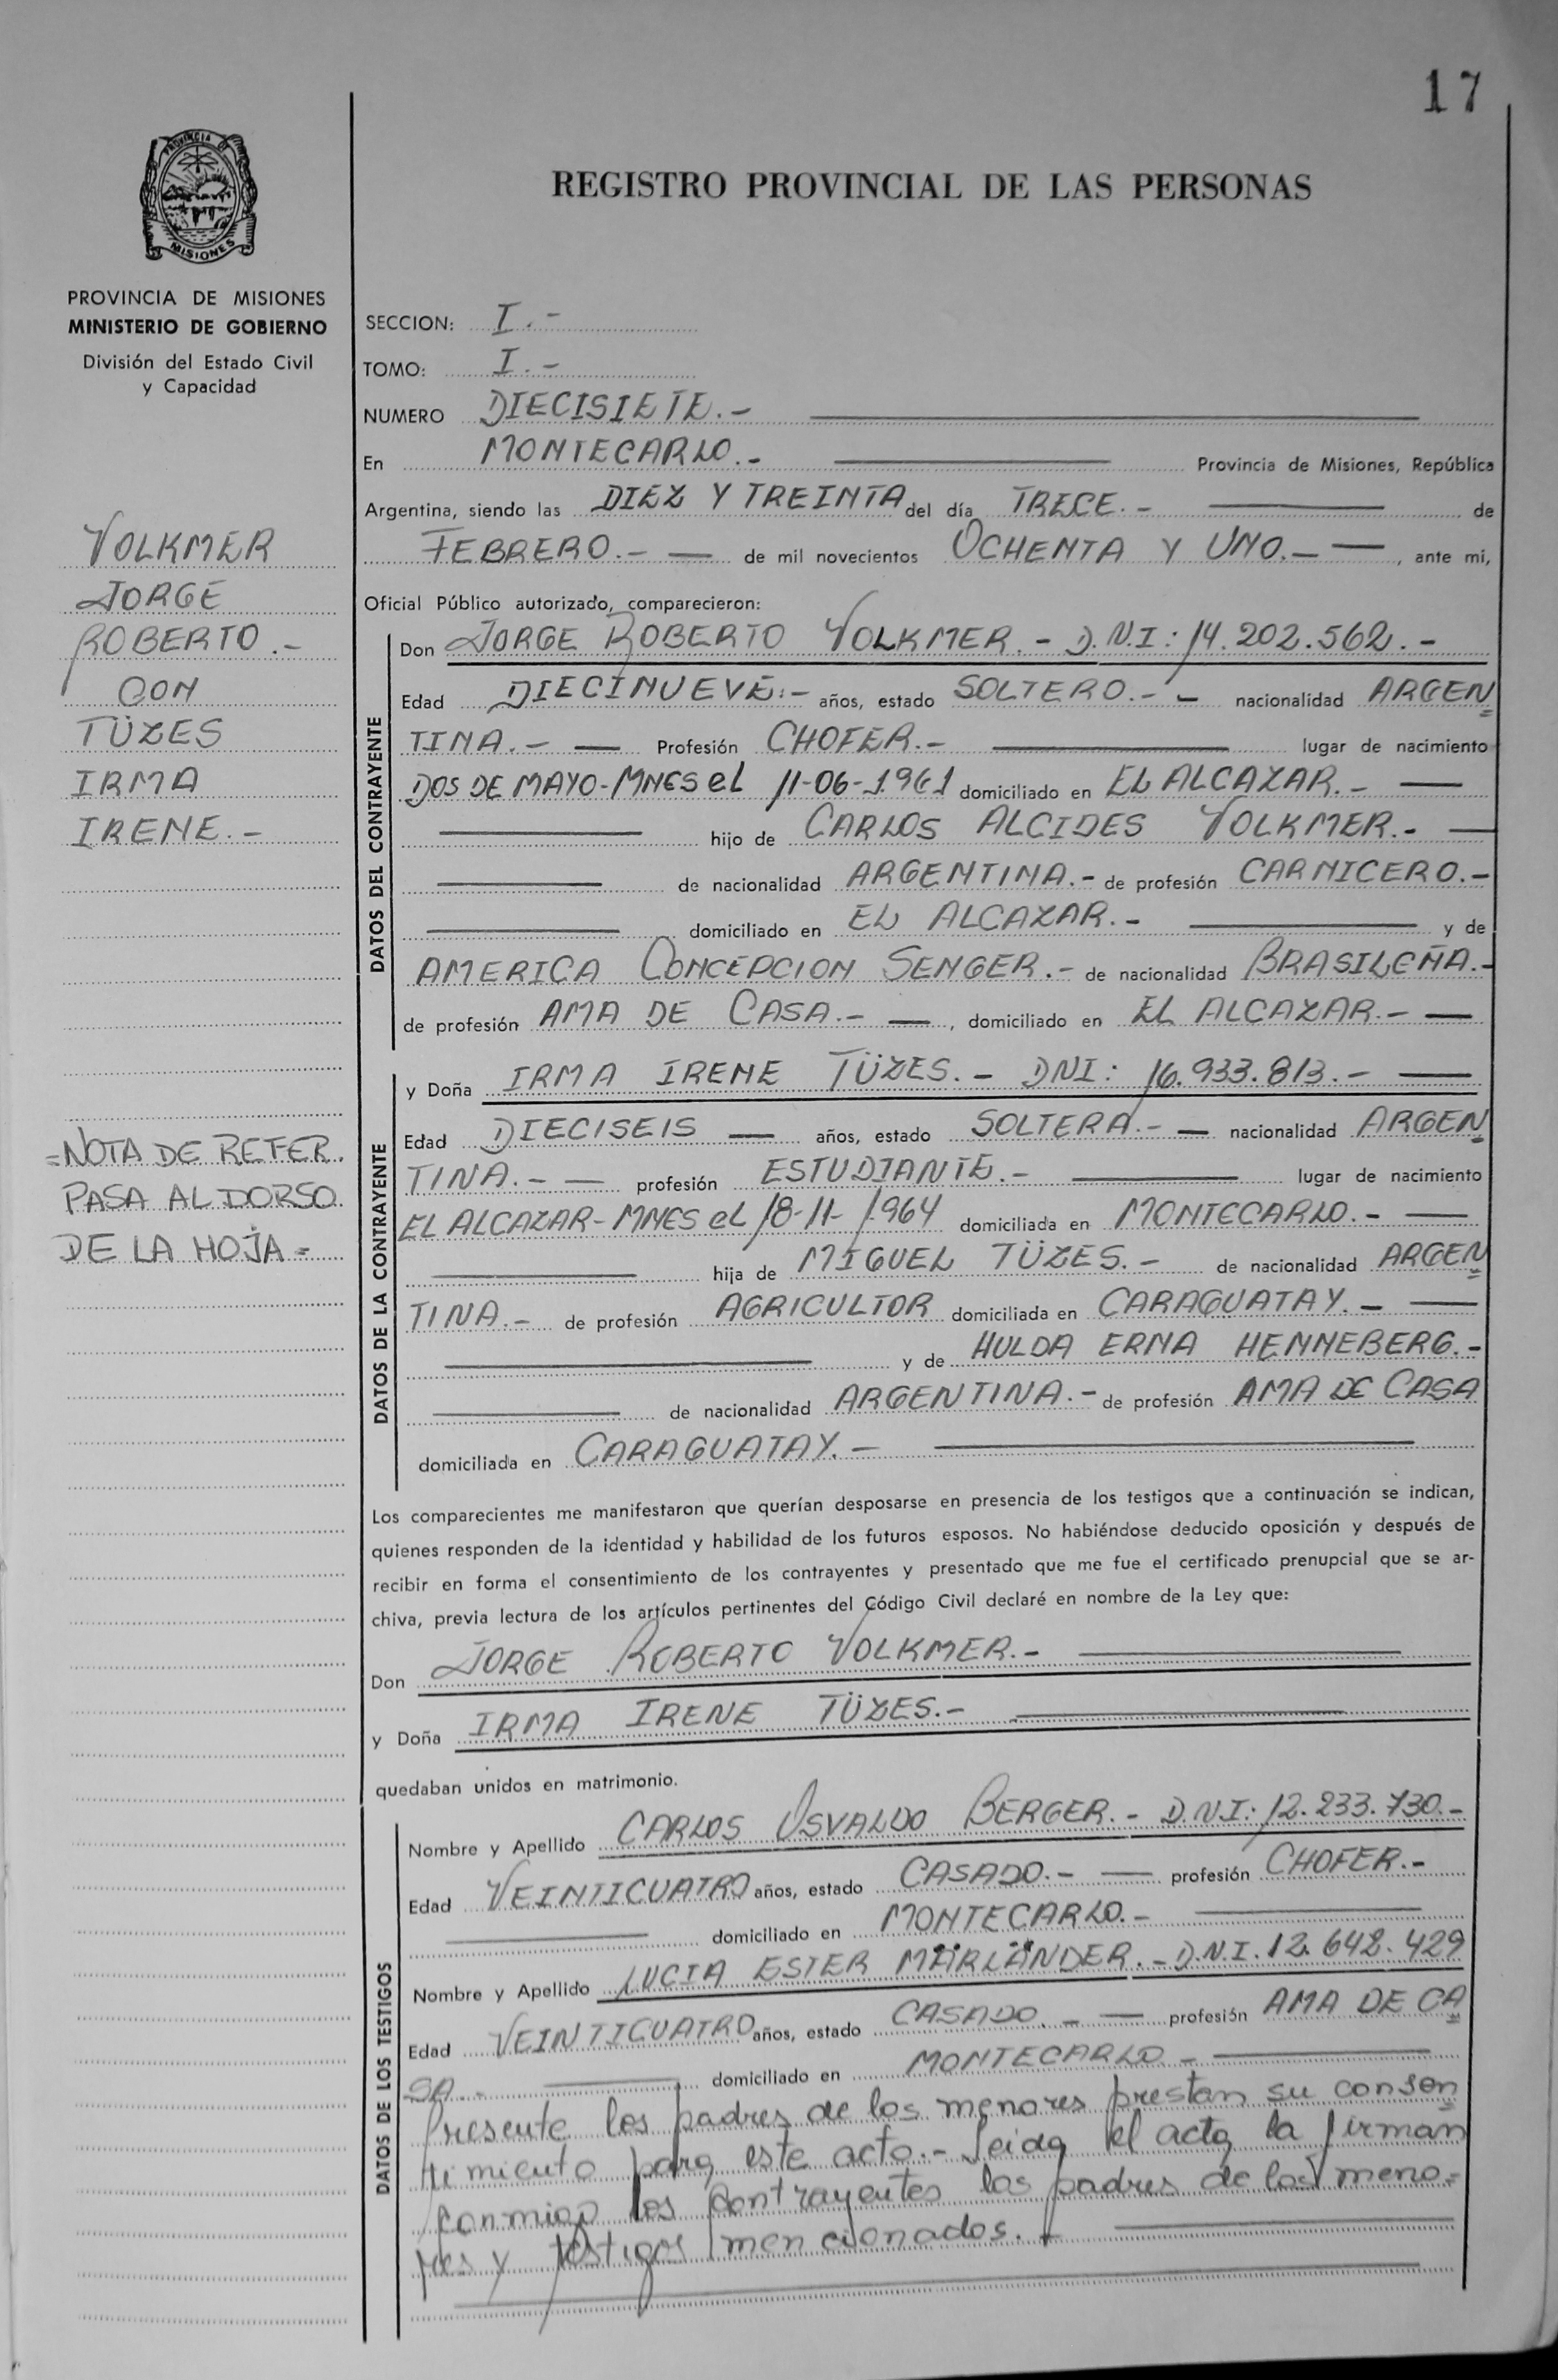 17
PROVINCIA DE
MISIONES
REGISTRO PROVINCIAL DE LAS PERSONAS
PROVINCIA DE MISIONES
MINISTERIO DE GOBIERNO
División del Estado Civil
y Capacidad
VOLKMER
JORGE
ROBERTO.-
CON
TÜZES
IRMA
IRENE.-
=NOTA DE REFER.
PASA AL DORSO.
DE LA HOJA=
SECCION: I.-
TOMO: I.-
NUMERO DIECISIETE.-
En MONTECARLO.- Provincia de Misiones, República
Argentina, siendo las DIEZ Y TREINTA del día TRECE.- de
FEBRERO.- de mil novecientos OCHENTA Y UNO.- , ante mi,
Oficial Público autorizado, comparecieron:
DATOS DEL CONTRAYENTE
Don JORGE ROBERTO VOLKMER.- D.N.I: 14.202.562.-
Edad DIECINUEVE:- años, estado SOLTERO.- - nacionalidad ARGEN
TINA.- Profesión CHOFER.- lugar de nacimiento
DOS DE MAYO-MNES el 11-06-1.961 domiciliado en EL ALCAZAR.-
hijo de CARLOS ALCIDES VOLKMER.-
de nacionalidad ARGENTINA.- de profesión CARNICERO.-
domiciliado en EL ALCAZAR.- y de
AMERICA CONCEPCION SENGER.- de nacionalidad BRASILEÑA.-
de profesión AMA DE CASA.- , domiciliado en EL ALCAZAR.-
DATOS DE LA CONTRAYENTE
y Doña IRMA IRENE TÜZES.- DNI: 16.933.813.-
Edad DIECISEIS años, estado SOLTERA.- nacionalidad ARGEN
TINA.- profesión ESTUDIANTE.- lugar de nacimiento
EL ALCAZAR-MNES el 18-11-1964 domiciliada en MONTECARLO.-
hija de MIGUEL TÜZES.- de nacionalidad ARGEN
TINA.- de profesión AGRICULTOR domiciliada en CARAGUATAY.-
y de HULDA ERNA HENNEBERG.-
de nacionalidad ARGENTINA.- de profesión AMA DE CASA
domiciliada en CARAGUATAY.-
Los comparecientes me manifestaron que querían desposarse en presencia de los testigos que a continuación se indican,
quienes responden de la identidad y habilidad de los futuros esposos. No habiéndose deducido oposición y después de
recibir en forma el consentimiento de los contrayentes y presentado que me fue el certificado prenupcial que se ar-
chiva, previa lectura de los artículos pertinentes del Código Civil declaré en nombre de la Ley que:
Don JORGE ROBERTO VOLKMER.-
y Doña IRMA IRENE TÜZES.-
quedaban unidos en matrimonio.
DATOS DE LOS TESTIGOS
Nombre y Apellido CARLOS OSVALDO BERGER.- D.N.I: 12.233.730.-
Edad VEINTICUATRO años, estado CASADO.- profesión CHOFER.-
domiciliado en MONTECARLO.-
Nombre y Apellido LUCIA ESTER MÄRLÄNDER.- D.N.I. 12.642.429
Edad VEINTICUATRO años, estado CASADO.- profesión AMA DE CA
SA.- domiciliado en MONTECARLO-
Presente los padres de los menores prestan su consen
timiento para este acto.- Leida el acta la firman
conmigo los contrayentes los padres de los meno=
res y testigos mencionados.-